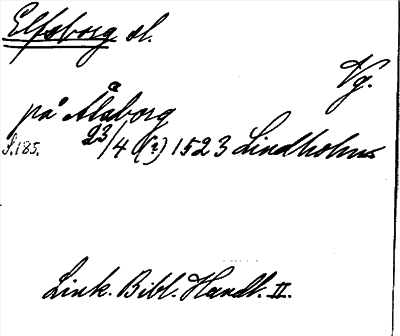 Elfsborg sl.
Vg.
på Ålaborg
S.185. 23/4 (?) 1523 Lindholm
Link. Bibl. Handl. II.